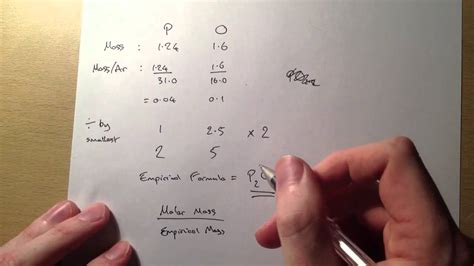 P O
Mass : 1.24 1.6
Mass/Ar : 1.24/31.0 1.6/16.0
= 0.04 0.1
÷ by smallest 1 2.5 × 2
2 5
Empirical Formula = P₂O
Molar Mass
Empirical Mass